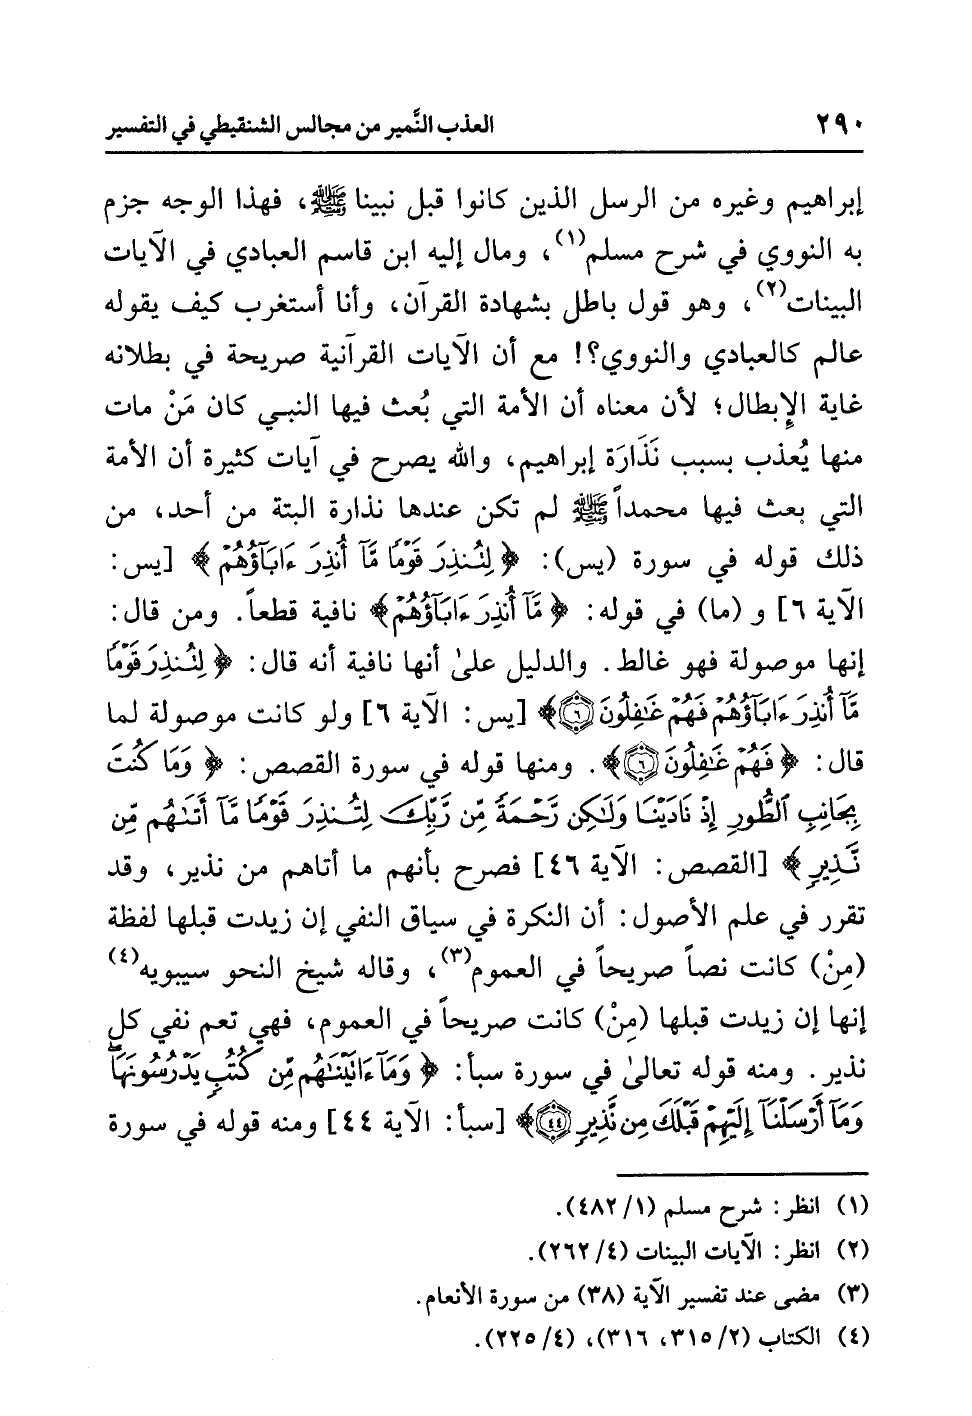 ٢٩٠ العذب النَّمير من مجالس الشنقيطي في التفسير
إبراهيم وغيره من الرسل الذين كانوا قبل نبينا ﷺ، فهذا الوجه جزم
به النووي في شرح مسلم(١)، ومال إليه ابن قاسم العبادي في الآيات
البينات(٢)، وهو قول باطل بشهادة القرآن، وأنا أستغرب كيف يقوله
عالم كالعبادي والنووي؟! مع أن الآيات القرآنية صريحة في بطلانه
غاية الإبطال؛ لأن معناه أن الأمة التي بُعث فيها النبي كان مَنْ مات
منها يُعذب بسبب نَذَارَة إبراهيم، والله يصرح في آيات كثيرة أن الأمة
التي بعث فيها محمداً ﷺ لم تكن عندها نذارة البتة من أحد، من
ذلك قوله في سورة (يس): ﴿ لِتُنذِرَ قَوْمًا مَّآ أُنذِرَ ءَابَآؤُهُمْ ﴾ [يس:
الآية ٦] و (ما) في قوله: ﴿ مَّآ أُنذِرَ ءَابَآؤُهُمْ﴾ نافية قطعاً. ومن قال:
إنها موصولة فهو غالط. والدليل علىٰ أنها نافية أنه قال: ﴿ لِتُنذِرَ قَوْمًا
مَّآ أُنذِرَ ءَابَآؤُهُمْ فَهُمْ غَٰفِلُونَ ٦﴾ [يس: الآية ٦] ولو كانت موصولة لما
قال: ﴿ فَهُمْ غَٰفِلُونَ ٦﴾. ومنها قوله في سورة القصص: ﴿ وَمَا كُنتَ
بِجَانِبِ ٱلطُّورِ إِذْ نَادَيْنَا وَلَٰكِن رَّحْمَةً مِّن رَّبِّكَ لِتُنذِرَ قَوْمًا مَّآ أَتَىٰهُم مِّن
نَّذِيرٍ ﴾ [القصص: الآية ٤٦] فصرح بأنهم ما أتاهم من نذير، وقد
تقرر في علم الأصول: أن النكرة في سياق النفي إن زيدت قبلها لفظة
(مِنْ) كانت نصاً صريحاً في العموم(٣)، وقاله شيخ النحو سيبويه(٤)
إنها إن زيدت قبلها (مِنْ) كانت صريحاً في العموم، فهي تعم نفي كل
نذير. ومنه قوله تعالىٰ في سورة سبأ: ﴿ وَمَآ ءَاتَيْنَٰهُم مِّن كُتُبٍ يَدْرُسُونَهَا ۖ
وَمَآ أَرْسَلْنَآ إِلَيْهِمْ قَبْلَكَ مِن نَّذِيرٍ ٤٤﴾ [سبأ: الآية ٤٤] ومنه قوله في سورة
(١) انظر: شرح مسلم (١/ ٤٨٢).
(٢) انظر: الآيات البينات (٤/ ٢٦٢).
(٣) مضى عند تفسير الآية (٣٨) من سورة الأنعام.
(٤) الكتاب (٢/ ٣١٥، ٣١٦)، (٤/ ٢٢٥).